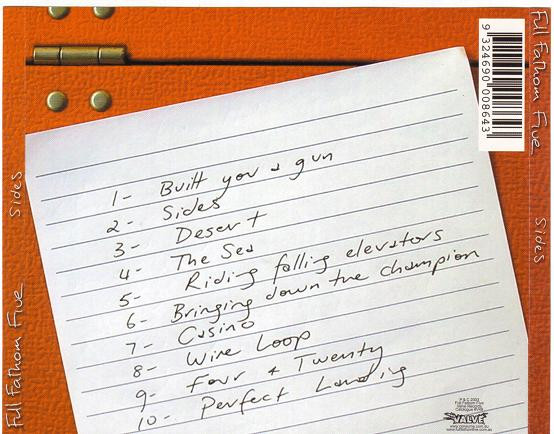 1- Built you a gun
2- Sides
3- Desert
4- The Sea
5- Riding falling elevators
6- Bringing down the champion
7- Casino
8- Wire Loop
9- Four & Twenty
10- Perfect Landing
Full Fathom Five Sides
Full Fathom Five Sides
9 324690 008643
P & C 2002
Full Fathom Five
VALVE